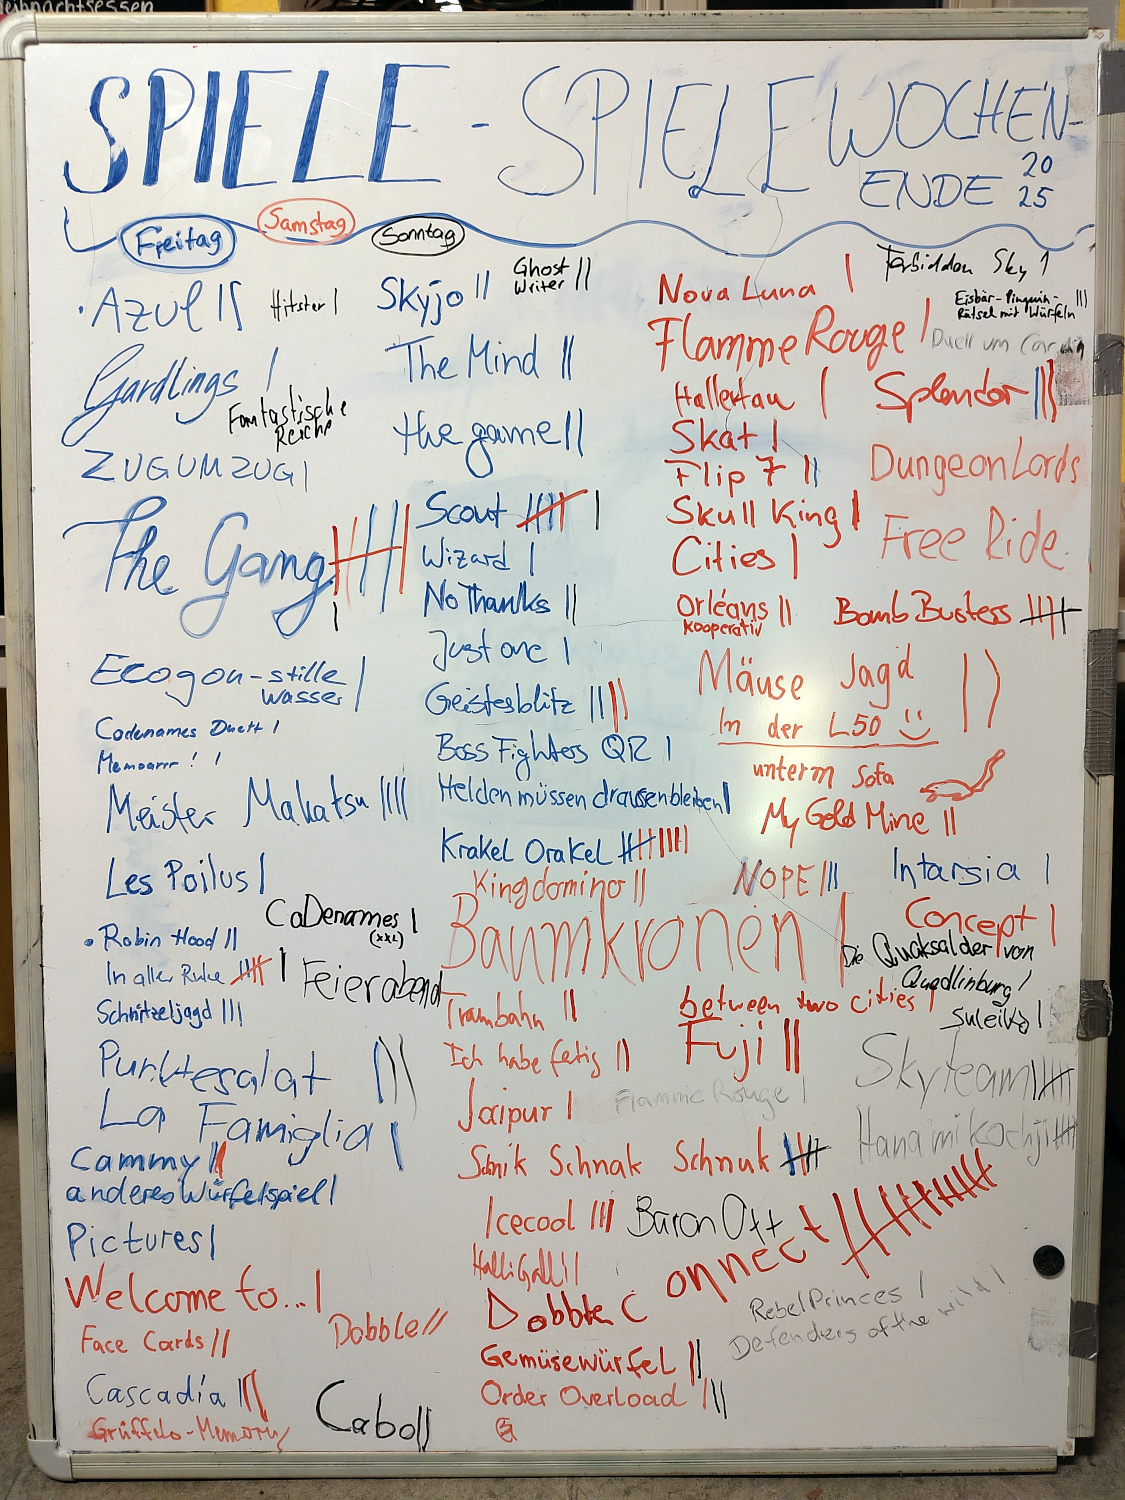 eihnachtsessen
SPIELE - SPIELEWOCHEN-
ENDE 20
25
Freitag Samstag Sonntag
Azul ||
Hitster |
Gardlings |
Fantastische
Reiche
ZUGUMZUG |
The Gang
|
Ecogon-stille
wasser |
Codenames Duett |
Memoarrr! |
Meister Makatsu ||||
Les Poilus |
CoDenames |
(XXL)
Robin Hood ||
In aller Ruhe |
Feierabend
Schnitzeljagd |||
Punktesalat |||
La Famiglia |
Cammy ||
anderes Würfelspiel |
Pictures |
Welcome to... |
Face Cards ||
Dobble ||
Cascadia |||
Grüffelo-Memory |
Cabo ||
Skyjo ||
Ghost
Writer ||
The Mind ||
the game ||
Scout |
Wizard |
No Thanks ||
Just one |
Geistesblitz ||||
Boss Fighters QR |
Helden müssen draussenbleiben |
Krakel Orakel
Kingdomino ||
Baumkronen |
Trambahn ||
Ich habe fetig ||
Jaipur |
Flamme Rouge |
Schnik Schnak Schnuk
Icecool |||
Baron Ott
HalliGalli |
Dobble Connect
Gemüsewürfel ||
Order Overload |||
Nova Luna |
Forbidden Sky 1
Eisbär-Pinguin-
Rätsel mit Würfeln |||
Flamme Rouge |
Duell um Cardia
Hallertau |
Splendor |||
Skat |
Flip 7 ||
DungeonLords
Skull King |
Free Ride
Cities |
Orléans ||
kooperativ
Bomb Busters
Mäuse Jagd ||
In der L50
unterm Sofa
My Gold Mine ||
NOPE |||
Intarsia |
Concept |
Die Quaksalder von
Quedlinburg |
between two cities |
Suleika |
Fuji ||
Skyteam
Hanamikochji
RebelPrinces |
Defenders of the wild |